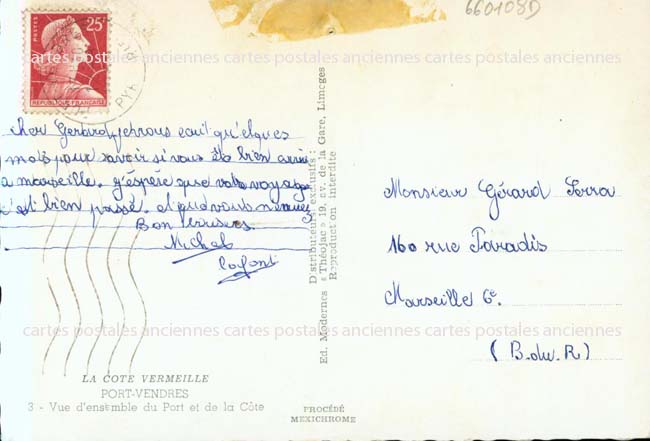 660108D
25F
REPUBLIQUE FRANÇAISE
PYR
cher Gerard je vous ecrit quelques
mots pour savoir si vous êtes bien
a marseille. j'éspére que votre voyage
c'est bien passé. et que vous
Bon
Michel
Monsieur Gérard Serra
160 rue Paradis
Marseille 6e.
(B.du.R)
Distributeurs exclusifs :
Ed. Modernes « Théojac » 19, av. de la Gare, Limoges
Reproduction interdite
cartes postales anciennes cartes postales anciennes cartes postales anciennes
cartes postales anciennes cartes postales anciennes cartes postales anciennes
cartes postales anciennes cartes postales anciennes cartes postales anciennes
LA COTE VERMEILLE
PORT-VENDRES
3 - Vue d'ensemble du Port et de la Côte
PROCÉDÉ
MEXICHROME